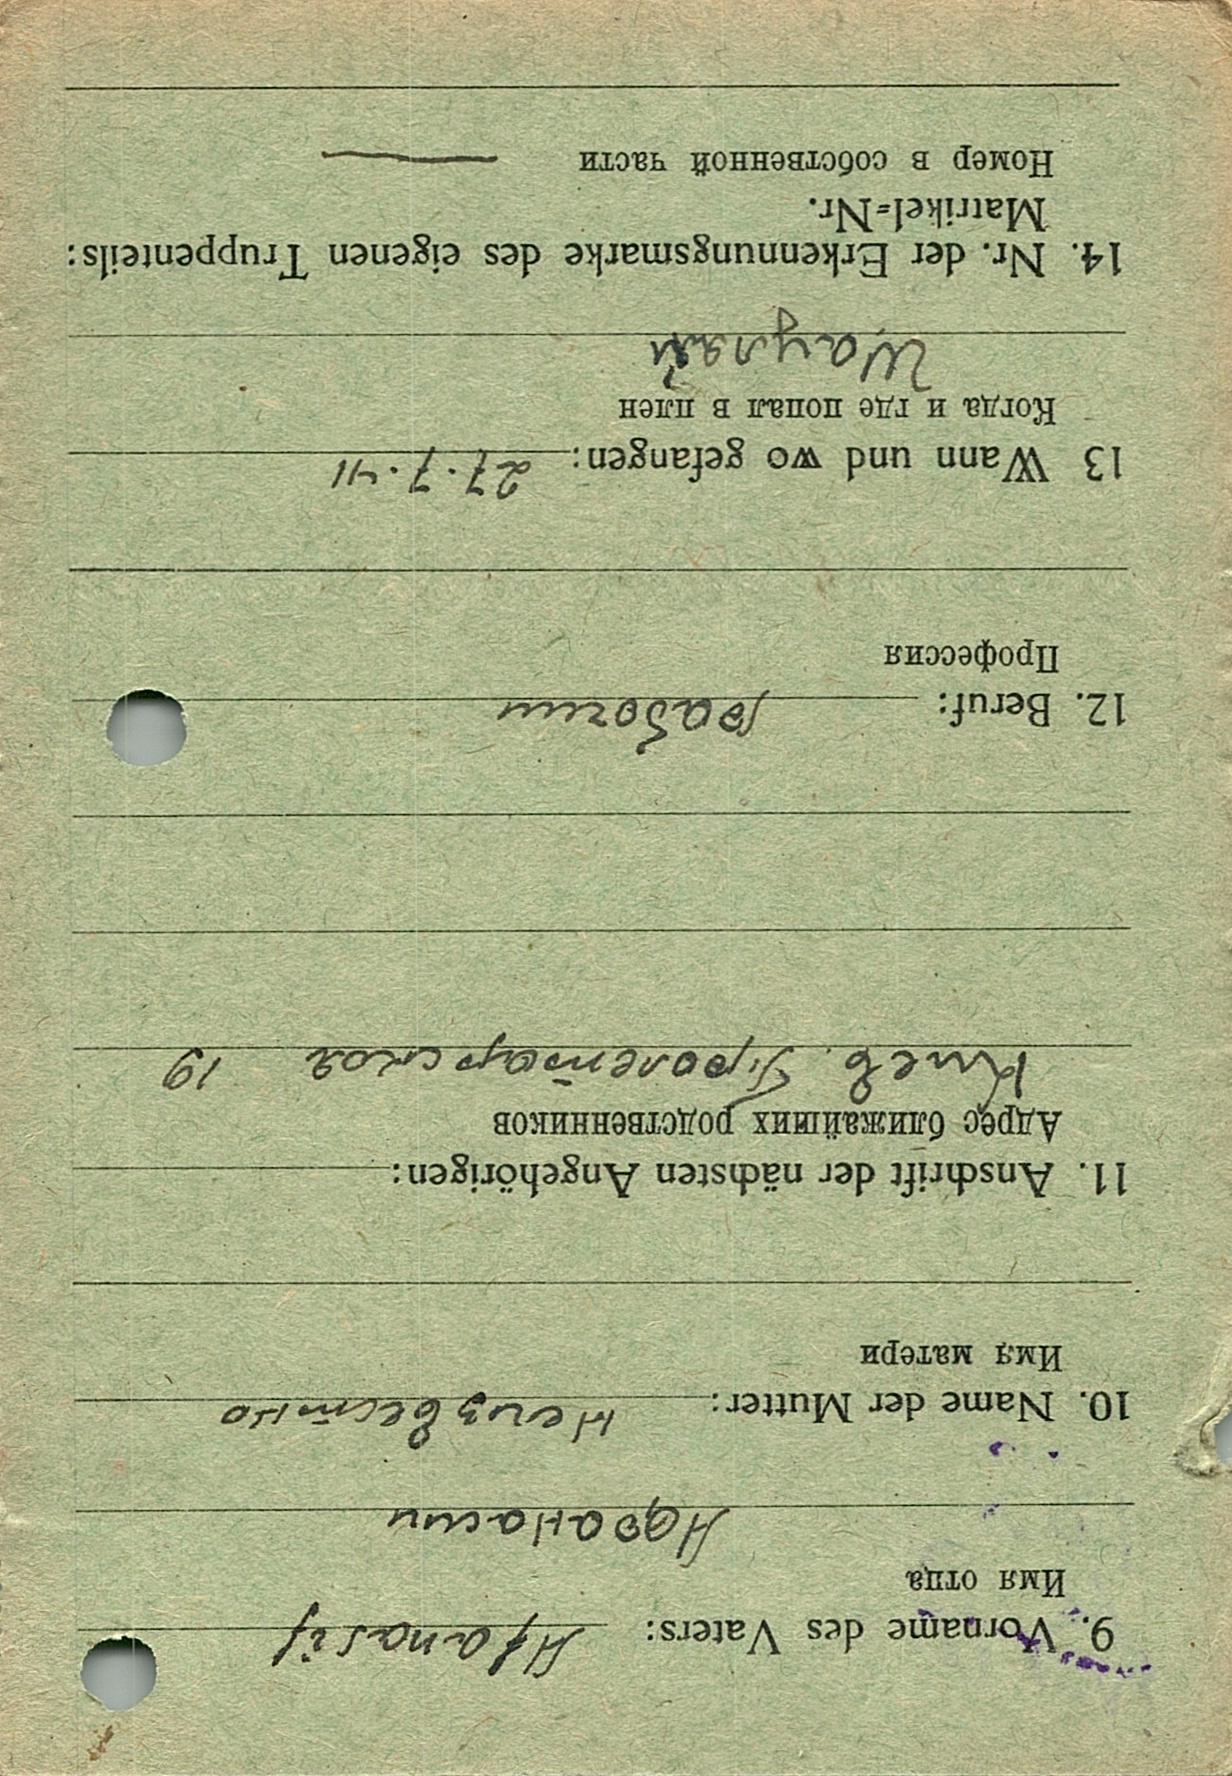 9. Vorname des Vaters: Afanasij
Имя отца
Афанасии
10. Name der Mutter: Неизвестно
Имя матери
11. Anschrift der nächsten Angehörigen:
Адрес ближайших родственников
Киев. Пролетарская 19
12. Beruf: рабочии
Профессия
13 Wann und wo gefangen: 27.7.41
Когда и где попал в плен
Шауляй
14. Nr. der Erkennungsmarke des eigenen Truppenteils:
Matrikel=Nr.
Номер в собственной части —